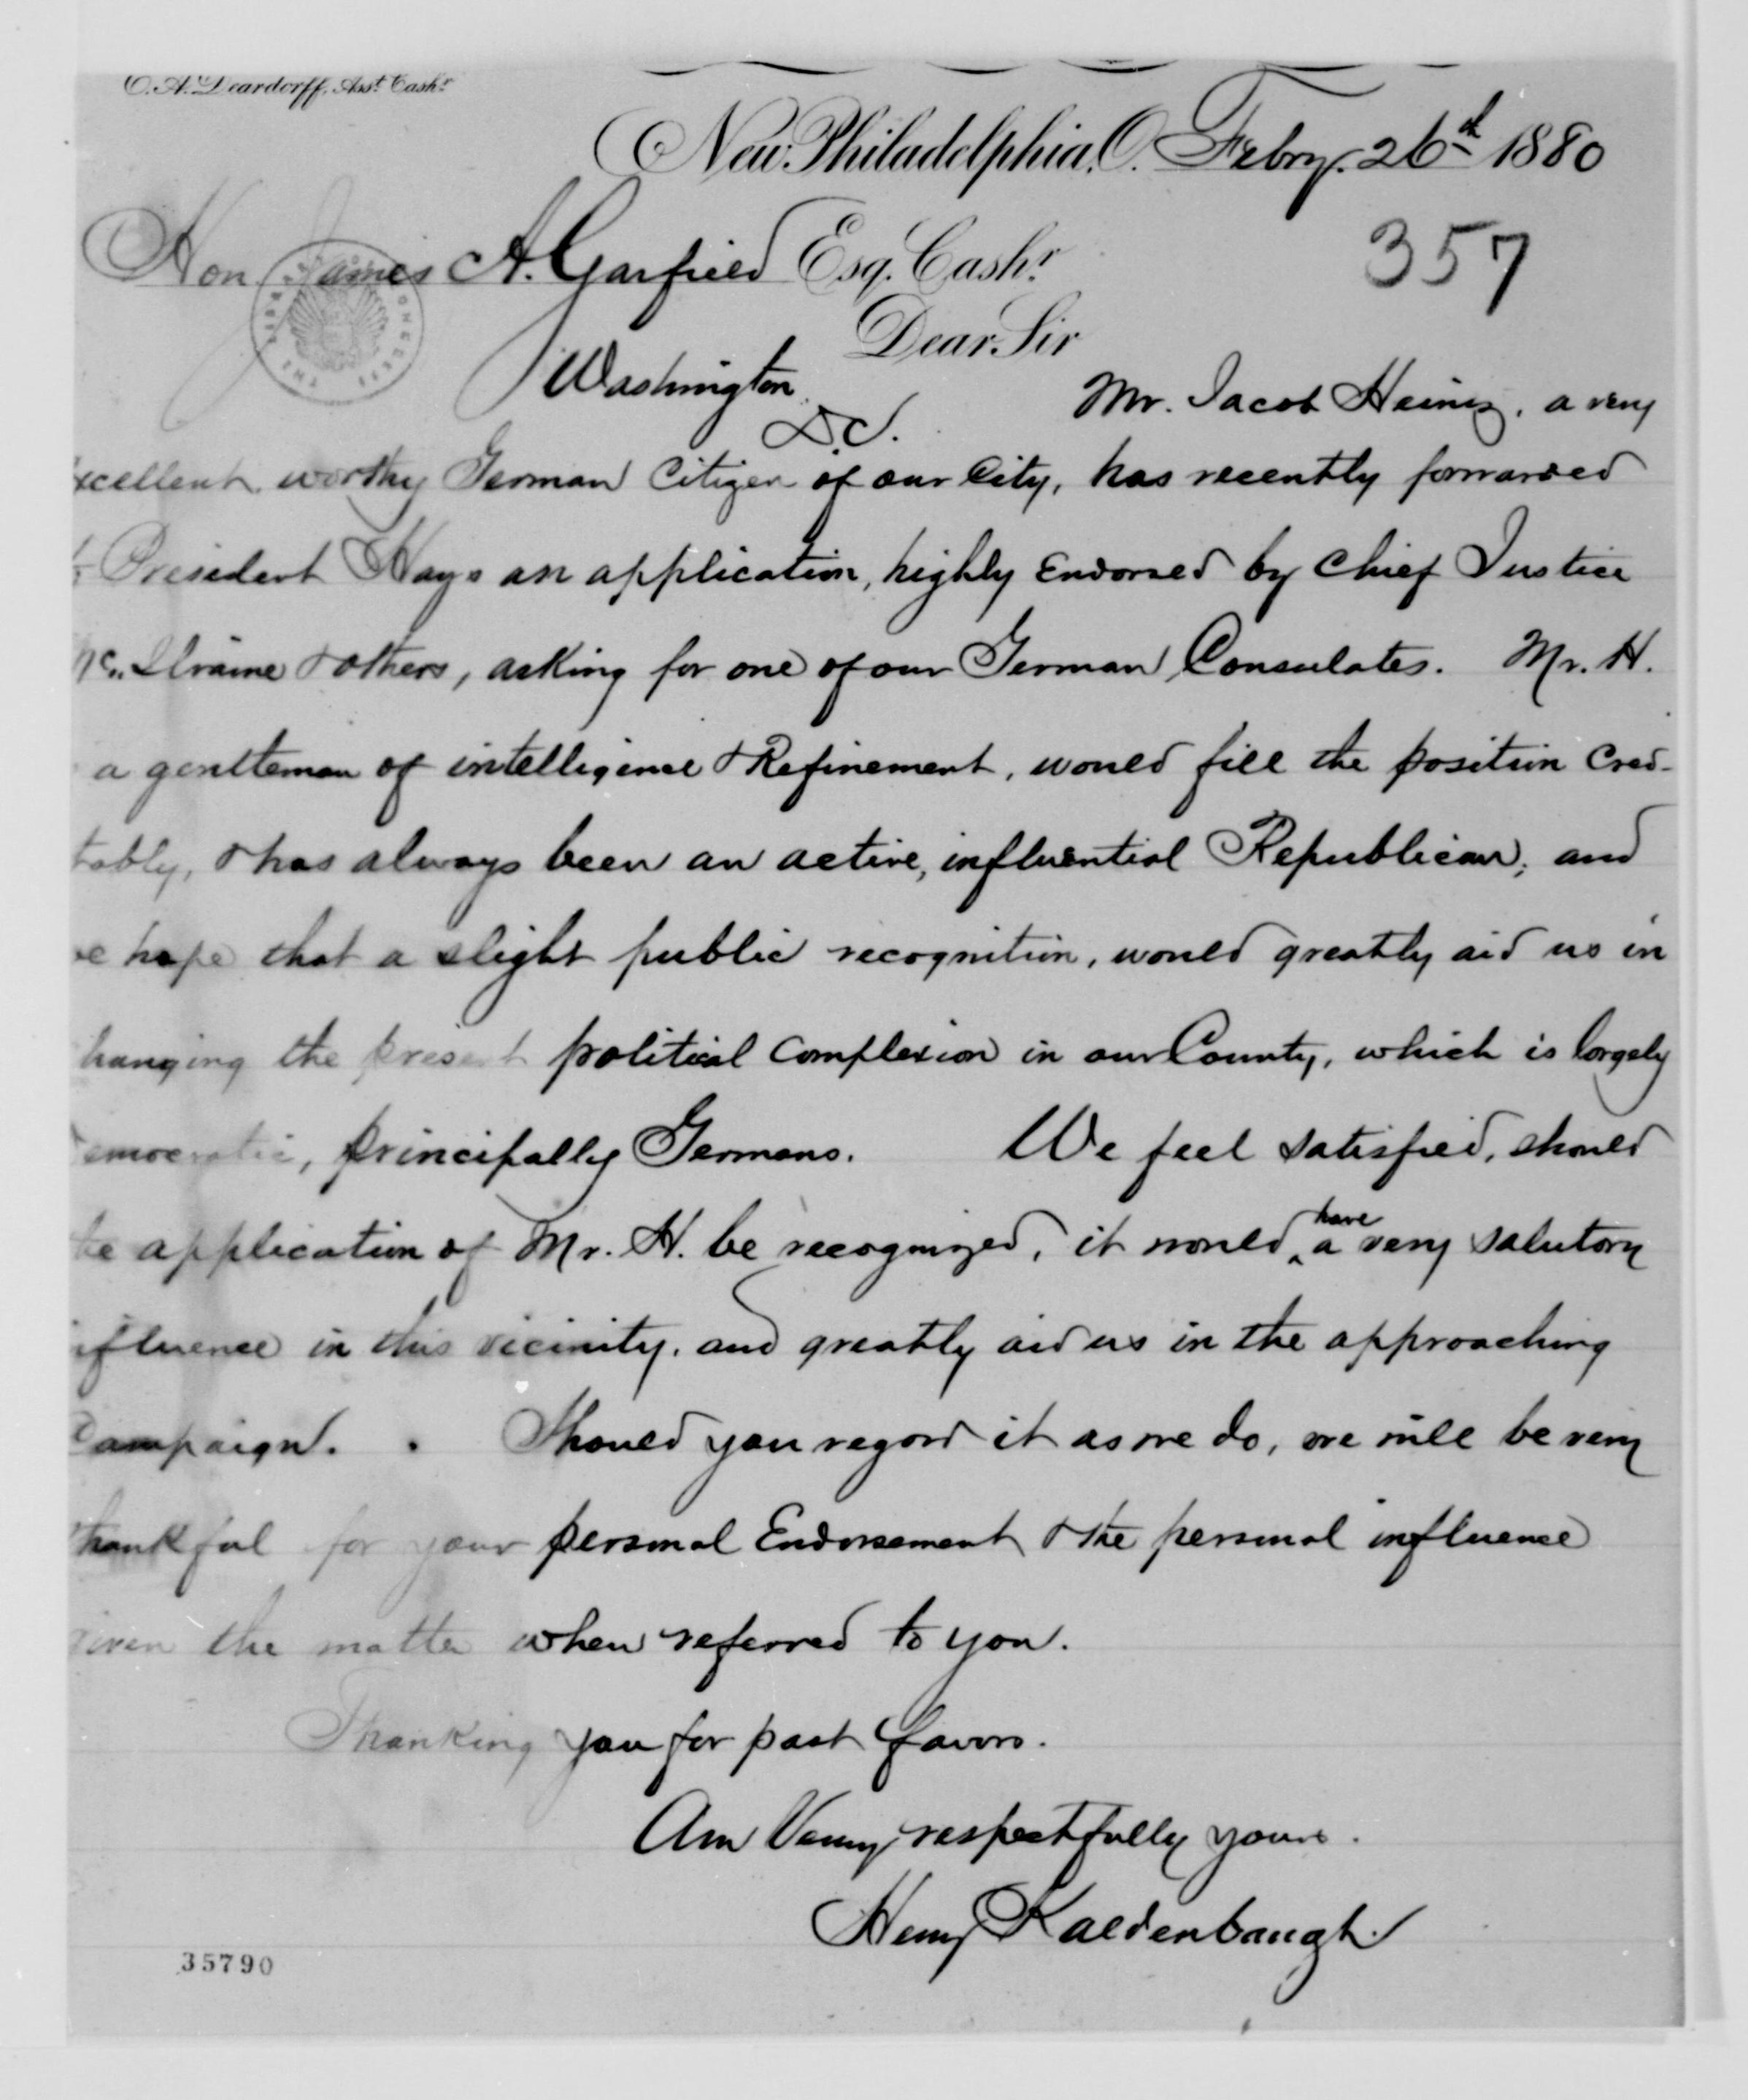 O. A. Deardorff, Asst. Cashr.
New Philadelphia, O. Febry. 26th 1880
357
Hon James A. Garfield Esq. Cashr.
Dear Sir
Washington
D.C.
Mr. Jacob Heinz, a very
xcellent worthy German Citizen of our City, has recently forwarded
President Hays an application, highly Endorsed by Chief Justice
Mc.Ilvaine & others, asking for one of our German Consulates. Mr. H.
a gentleman of intelligence & Refinement, would fill the position Cred-
tably, & has always been an active, influential Republican, and
e hope that a slight public recognition, would greatly aid us in
hanging the present political Complexion in our County, which is largely
emocratic, principally Germans. We feel satisfied, should
he application of Mr. H. be recognized, it would have a very salutory
nfluence in this vicinity, and greatly aid us in the approaching
Campaign. Should you regard it as we do, we will be very
thankful for your personal Endorsement & the personal influence
given the matter when referred to you.
Thanking you for past favors.
Am Very respectfully yours.
Henry Kaldenbaugh
35790